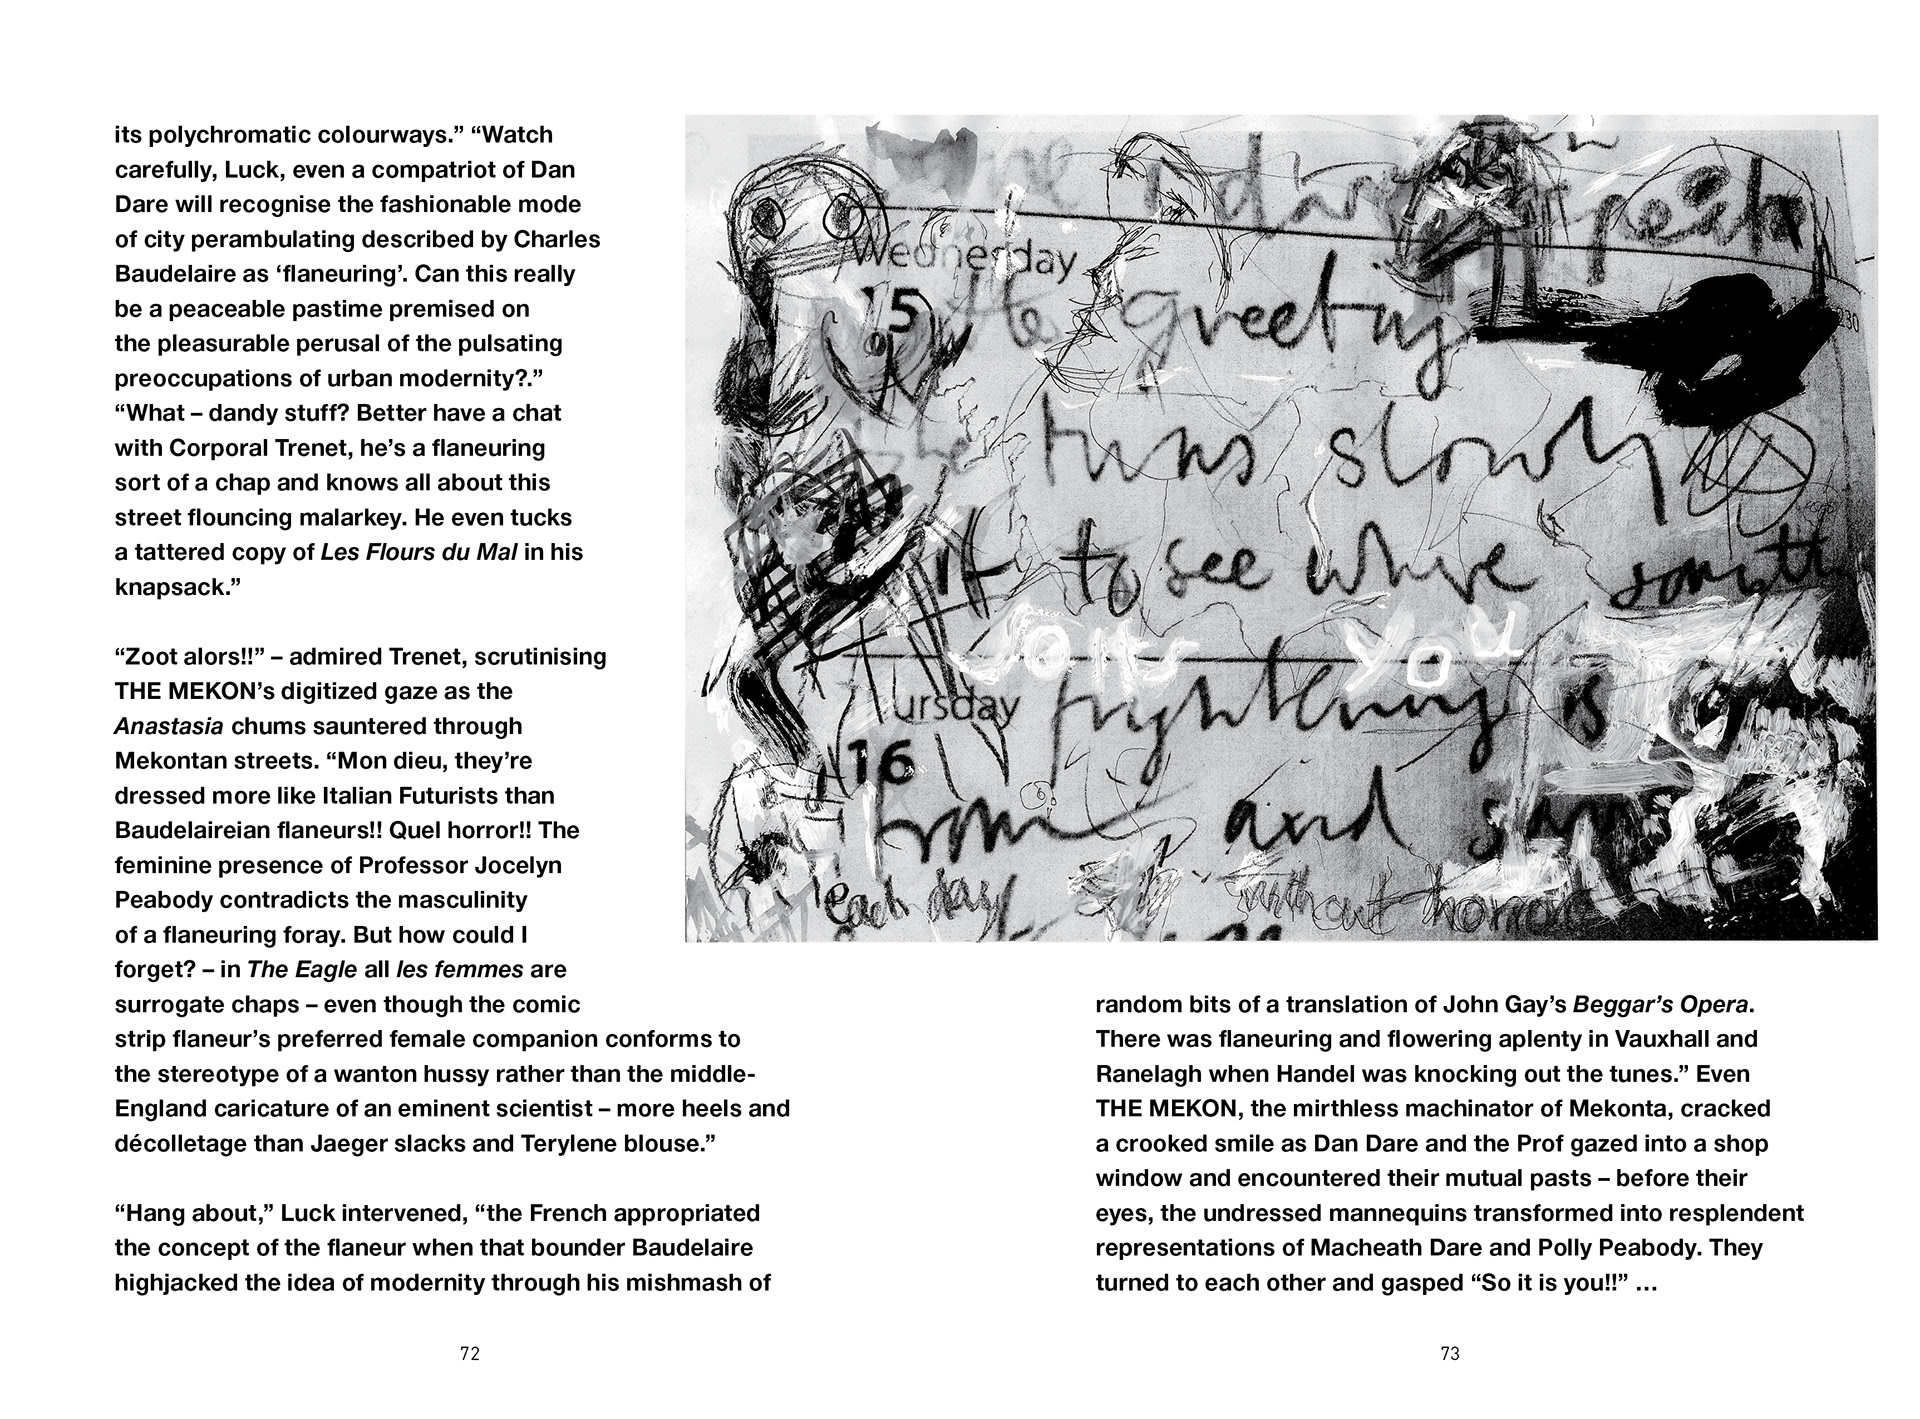 its polychromatic colourways.” “Watch
carefully, Luck, even a compatriot of Dan
Dare will recognise the fashionable mode
of city perambulating described by Charles
Baudelaire as ‘flaneuring’. Can this really
be a peaceable pastime premised on
the pleasurable perusal of the pulsating
preoccupations of urban modernity?.”
“What – dandy stuff? Better have a chat
with Corporal Trenet, he’s a flaneuring
sort of a chap and knows all about this
street flouncing malarkey. He even tucks
a tattered copy of Les Flours du Mal in his
knapsack.”
“Zoot alors!!” – admired Trenet, scrutinising
THE MEKON’s digitized gaze as the
Anastasia chums sauntered through
Mekontan streets. “Mon dieu, they’re
dressed more like Italian Futurists than
Baudelaireian flaneurs!! Quel horror!! The
feminine presence of Professor Jocelyn
Peabody contradicts the masculinity
of a flaneuring foray. But how could I
forget? – in The Eagle all les femmes are
surrogate chaps – even though the comic
strip flaneur’s preferred female companion conforms to
the stereotype of a wanton hussy rather than the middle-
England caricature of an eminent scientist – more heels and
décolletage than Jaeger slacks and Terylene blouse.”
“Hang about,” Luck intervened, “the French appropriated
the concept of the flaneur when that bounder Baudelaire
highjacked the idea of modernity through his mishmash of
72
Wednesday
15
greeting
230
turns slowly
to see where
you
ursday
frightening is
16
from and
each day without horror
random bits of a translation of John Gay’s Beggar’s Opera.
There was flaneuring and flowering aplenty in Vauxhall and
Ranelagh when Handel was knocking out the tunes.” Even
THE MEKON, the mirthless machinator of Mekonta, cracked
a crooked smile as Dan Dare and the Prof gazed into a shop
window and encountered their mutual pasts – before their
eyes, the undressed mannequins transformed into resplendent
representations of Macheath Dare and Polly Peabody. They
turned to each other and gasped “So it is you!!” …
73